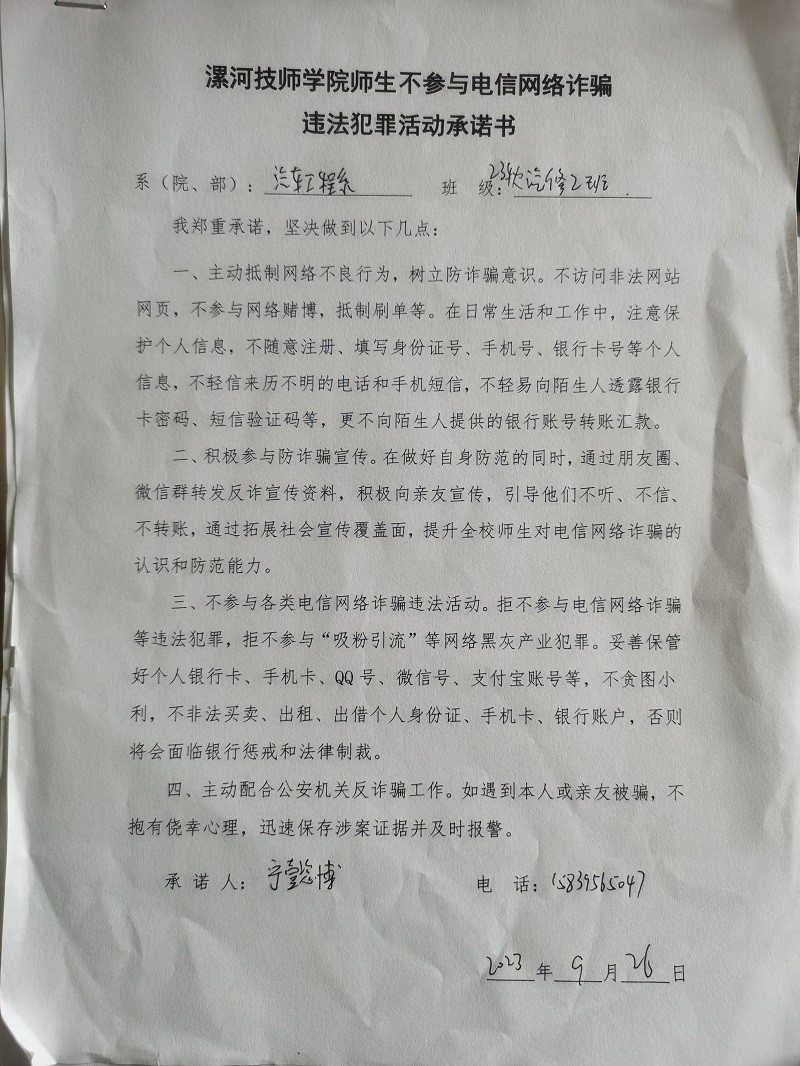 漯河技师学院师生不参与电信网络诈骗
违法犯罪活动承诺书
系（院、部）：汽车工程系 班 级：汽修2班
我郑重承诺，坚决做到以下几点：
一、主动抵制网络不良行为，树立防诈骗意识。不访问非法网站
网页，不参与网络赌博，抵制刷单等。在日常生活和工作中，注意保
护个人信息，不随意注册、填写身份证号、手机号、银行卡号等个人
信息，不轻信来历不明的电话和手机短信，不轻易向陌生人透露银行
卡密码、短信验证码等，更不向陌生人提供的银行账号转账汇款。
二、积极参与防诈骗宣传。在做好自身防范的同时，通过朋友圈、
微信群转发反诈宣传资料，积极向亲友宣传，引导他们不听、不信、
不转账，通过拓展社会宣传覆盖面，提升全校师生对电信网络诈骗的
认识和防范能力。
三、不参与各类电信网络诈骗违法活动。拒不参与电信网络诈骗
等违法犯罪，拒不参与“吸粉引流”等网络黑灰产业犯罪。妥善保管
好个人银行卡、手机卡、QQ 号、微信号、支付宝账号等，不贪图小
利，不非法买卖、出租、出借个人身份证、手机卡、银行账户，否则
将会面临银行惩戒和法律制裁。
四、主动配合公安机关反诈骗工作。如遇到本人或亲友被骗，不
抱有侥幸心理，迅速保存涉案证据并及时报警。
承 诺 人： 电 话：15839565047
2023 年 9 月 26 日